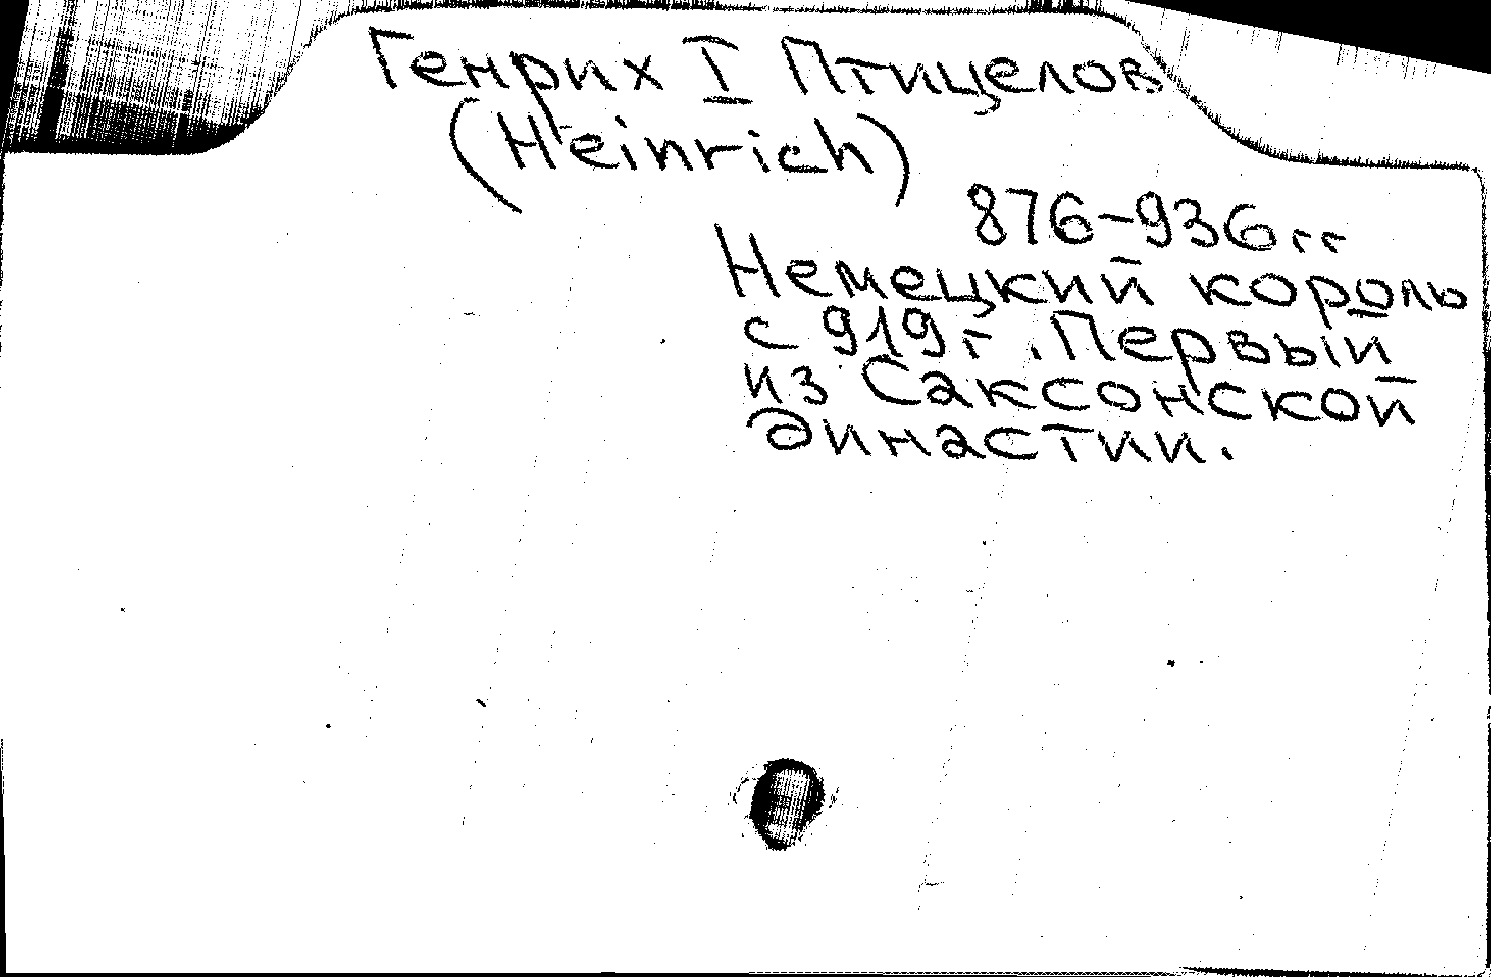 Генрих I Птицелов
(Heinrich)
876-936гг
Немецкий король
с 919г. Первый
из Саксонской
династии.